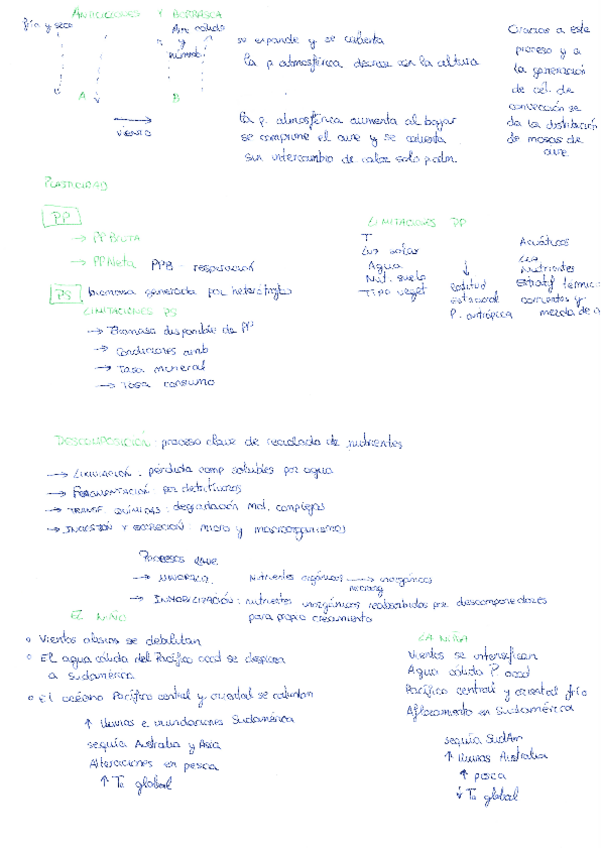 ANTICICLONES Y BORRASCA
fría y seco
Aire cálido
y
húmedo
A B
viento
se expande y se calienta
La p atmosférica decrece con la altura
La p. atmosférica aumenta al bajar
se comprime el aire y se calienta
sin intercambio de calor solo p adm.
Gracias a este
proceso y a
la generación
de cél. de
convección se
da la distribución
de masas de
aire.
PP
→ PP BRUTA
→ PP Neta PPB - respiración
PS biomasa generada por heterótrofos
LIMITACIONES PS
→ Biomasa disponible de PP
→ Condiciones amb
→ Tasa mineral
→ Tasa consumo
LIMITACIONES PP
T
Luz solar
Agua
Nut. suelo
Tipo veget
↓
Latitud
estacional
P. antrópica
Acuáticos
Luz
Nutrientes
Estratif térmica
corrientes y
mezcla de
DESCOMPOSICIÓN: proceso clave de reciclado de nutrientes
→ LIXIVIACIÓN: pérdida comp solubles por agua
→ FRAGMENTACIÓN: por detritívoros
→ TRANSF. QUÍMICAS: degradación mol. complejas
→ INGESTIÓN Y EXCRECIÓN: micro y macroorganismos
Procesos clave
→ MINERALIZ. Nutrientes orgánicos → inorgánicos
microorg
→ INMOBILIZACIÓN: nutrientes inorgánicos reabsorbidos por descomponedores
para propio crecimiento
EL NIÑO
Vientos alisios se debilitan
El agua cálida del Pacífico occid se desplaza
a Sudamérica
El océano Pacífico central y oriental se calientan
↑ lluvias e inundaciones Sudamérica
sequía Australia y Asia
Alteraciones en pesca
↑ Tª global
LA NIÑA
Vientos se intensifican
Agua cálida P. occid
Pacífico central y oriental frío
Afloramiento en Sudamérica
sequía SudAm
↑ lluvias Australia
↑ pesca
↓ Tª global